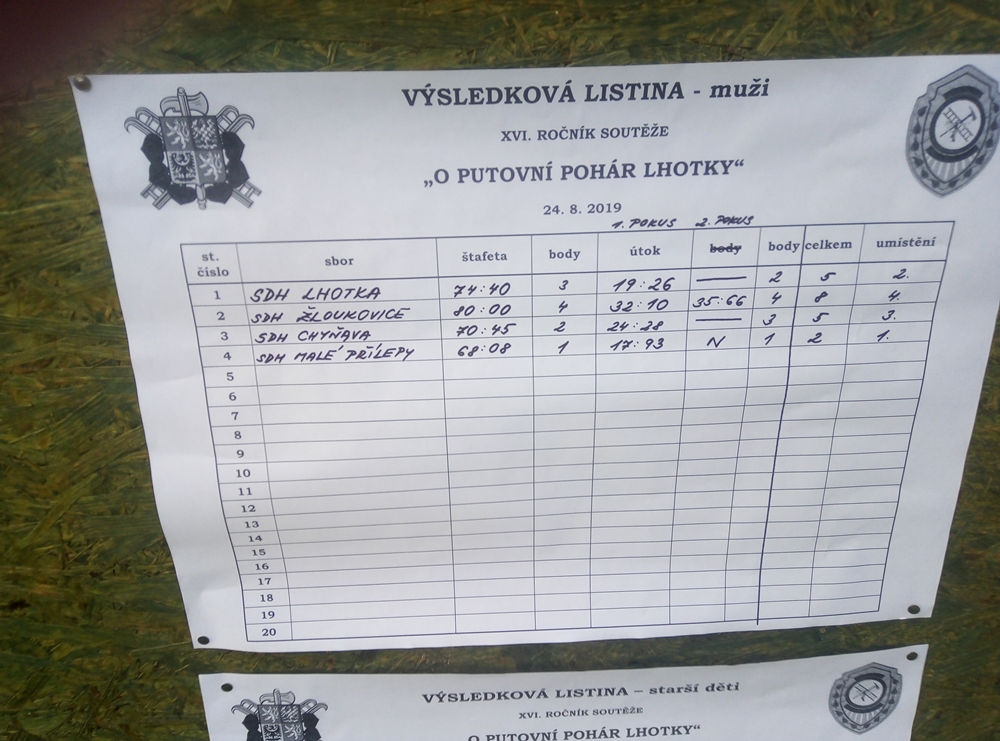 VÝSLEDKOVÁ LISTINA - muži
XVI. ROČNÍK SOUTĚŽE
„O PUTOVNÍ POHÁR LHOTKY“
24. 8. 2019
1. POKUS 2. POKUS
st. číslo sbor štafeta body útok body body celkem umístění
1 SDH LHOTKA 74:40 3 19:26 — 2 5 2.
2 SDH ŽLOUKOVICE 80:00 4 32:10 35:66 4 8 4.
3 SDH CHYŇAVA 70:45 2 24:28 — 3 5 3.
4 SDH MALÉ PŘÍLEPY 68:08 1 17:93 N 1 2 1.
5
6
7
8
9
10
11
12
13
14
15
16
17
18
19
20
VÝSLEDKOVÁ LISTINA – starší děti
XVI. ROČNÍK SOUTĚŽE
„O PUTOVNÍ POHÁR LHOTKY“